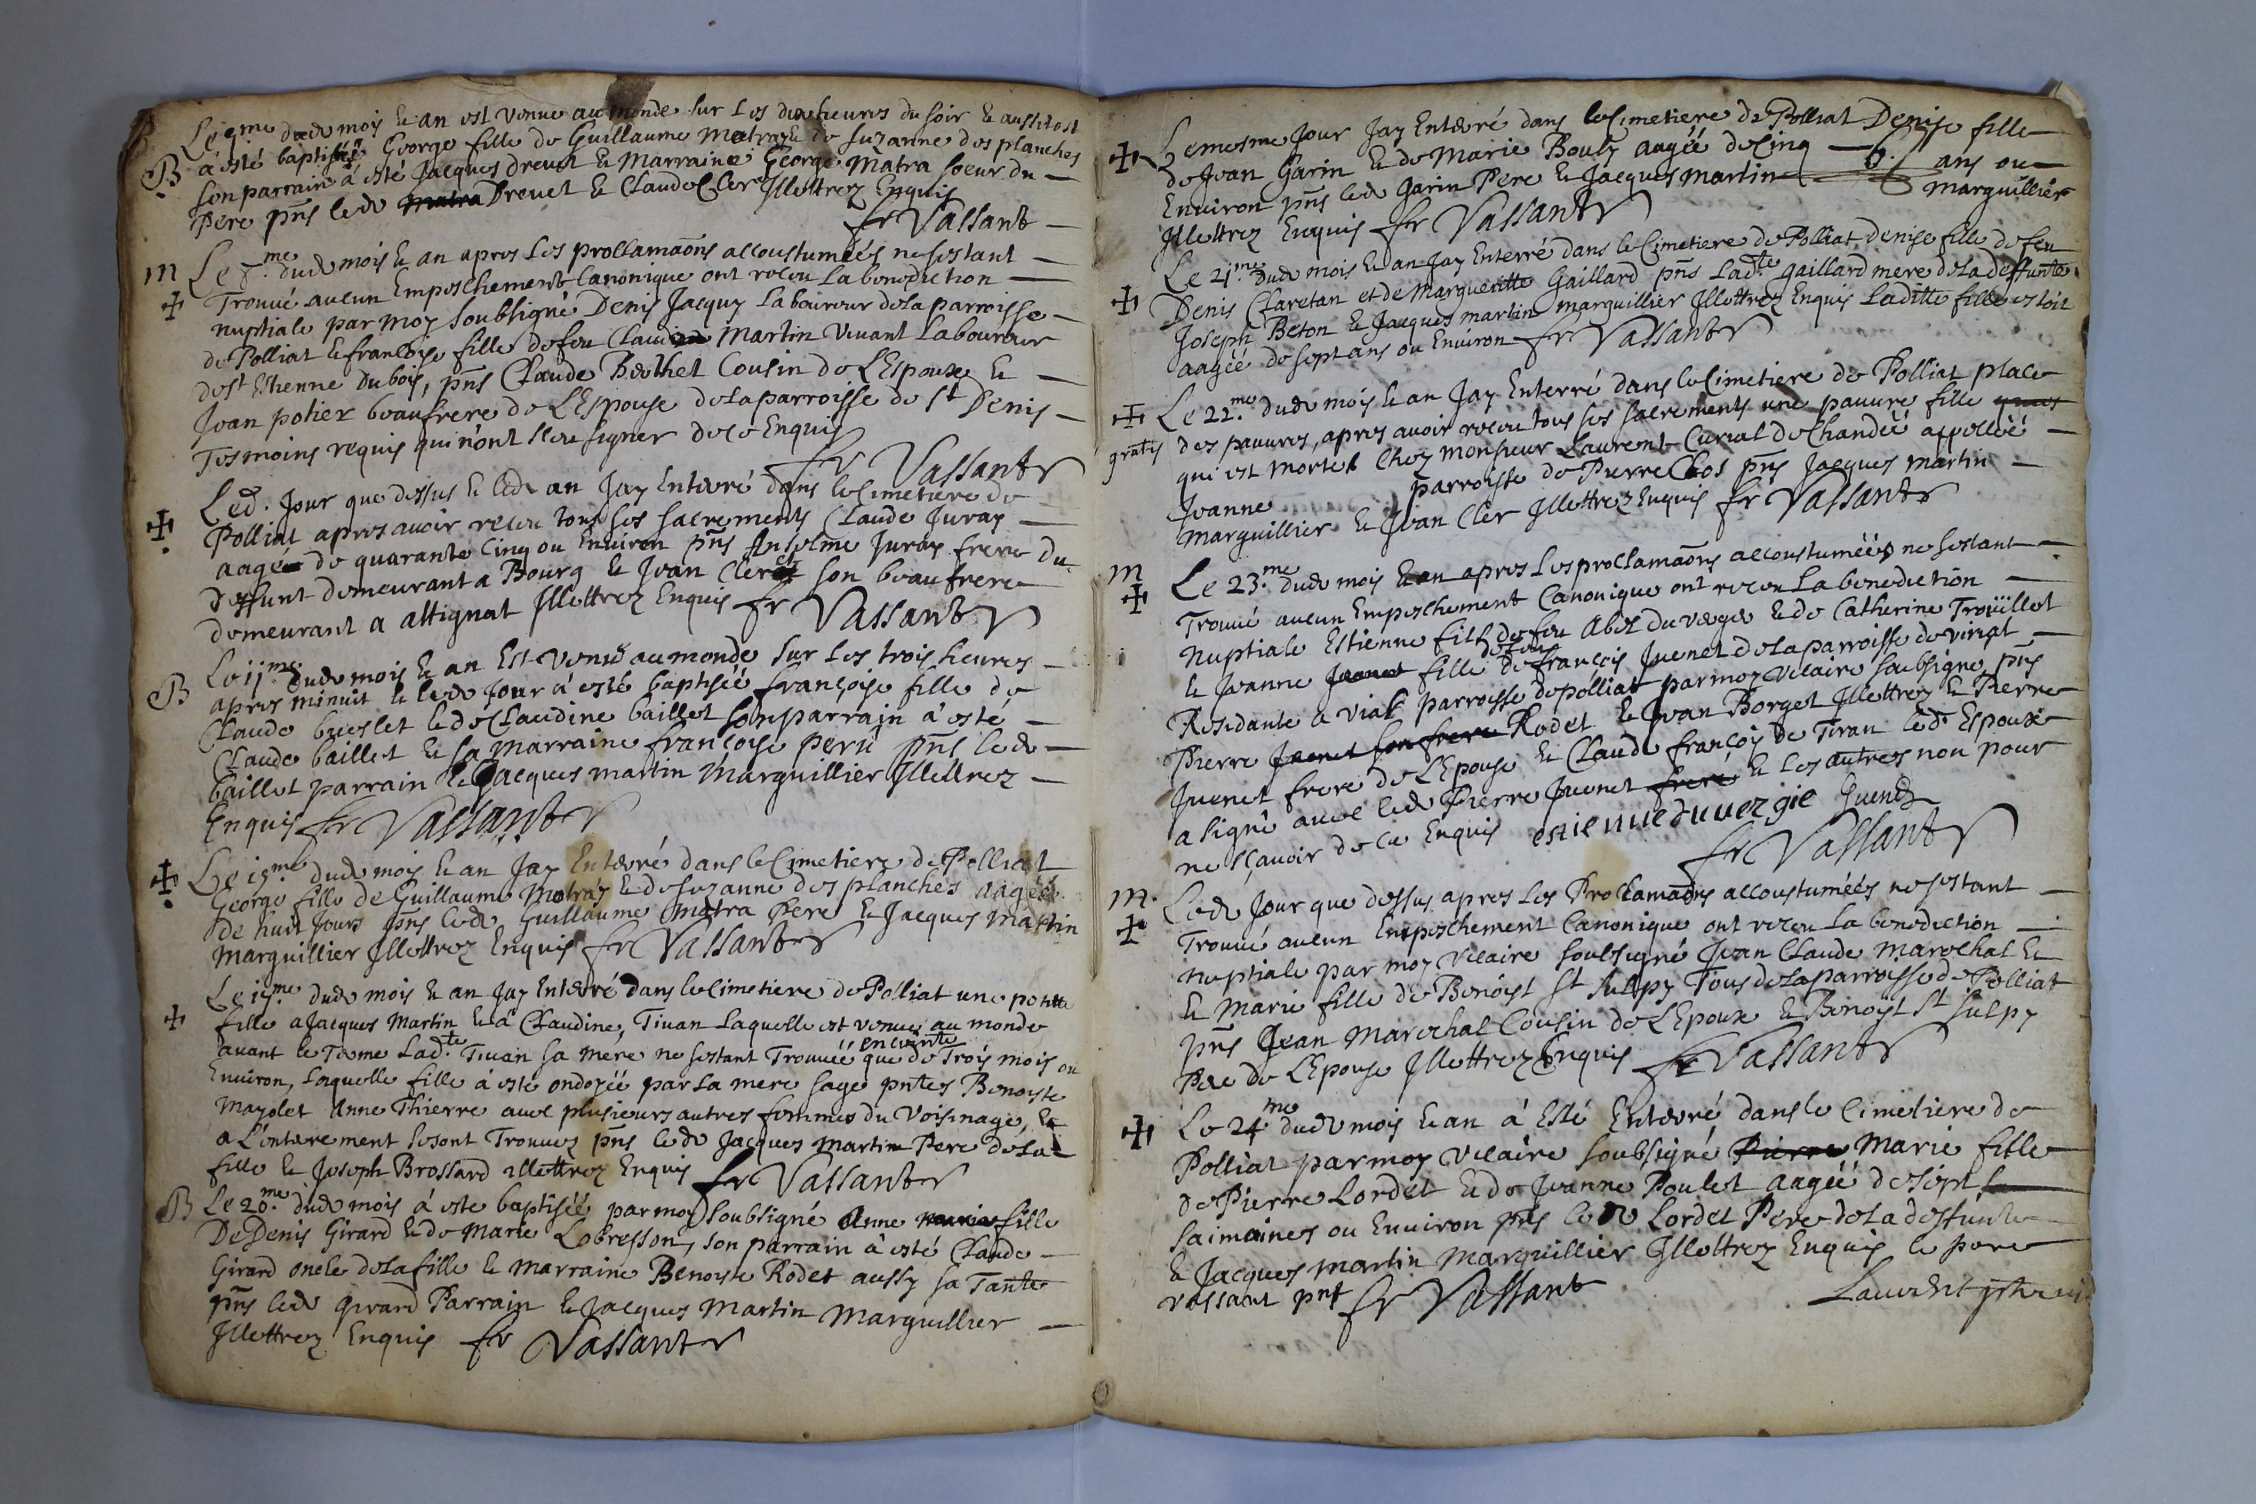 B Le 8me dud mois & an est venue au monde sur les dix heures du soir & aussitost
à esté baptisée George fille de Guillaume Matray & de Suzanne des planches
son parrain à esté Jacques Drevet & Marraine George Matra soeur du
Pere pñs led Drevet & Claude Cler Illettrez Enquis
fr Vassant
m Le dud mois & an apres les proclamaõns accoustumées ne sestant
Trouvé aucun Empeschement Canonique ont receu la benediction
nuptiale par moy soubsigné Denis Jacquy laboureur de la parroisse
de Polliat & françoise fille de feu Claude Martin vivant Laboureur
de st Estienne du bois, pñs Claude Berthet Cousin de L'Espoux &
Jean potier beaufrere de L'Espouse de la parroisse de st Denis
Tesmoins requis qui n'ont sceu signer de ce Enquis
fr Vassant
Led. Jour que dessus & led an Jay Enterré dans le Cimetiere de
Polliat apres avoir receu tous ses sacrements Claude Juray
aagé de quarante Cinq ou Environ pñs Anselme Juray frere du
deffunt demeurant a Bourg & Jean Cler son beaufrere
demeurant a attignat Illettrez Enquis fr Vassant
B Le 11me dud mois & an Est venue au monde sur les trois heures
apres minuit & led Jour à esté baptisée françoise fille de
Claude brestet & de Claudine baillet son parrain à esté
Claude baillet & sa marraine françoise peru pñs led
baillet parrain & Jacques martin Marguillier Illettrez
Enquis fr Vassant
Le 15me dud mois & an Jay Enterré dans le Cimetiere de Polliat
George fille de Guillaume Matray & de Suzanne des planches aagée
de huit Jours pñs led Guillaume Matra Pere & Jacques Martin
Marguillier Illettrez Enquis fr Vassant
Le 19me dud mois & an Jay Enterré dans le Cimetiere de Polliat une petitte
fille a Jacques Martin & a Claudine Tivan Laquelle est venue au monde
avant le Terme Ladte Tivan sa mere ne sestant Trouvée enceinte que de Trois mois ou
Environ, Laquelle fille à esté ondoyée par la mere sage pñtes Benoiste
Mazolet Anne Thierre avec plusieurs autres femmes du Voisinage, &
a L'enterement se sont Trouvez pñs led Jacques Martin Pere de la
fille & Joseph Brossard illettrez Enquis fr Vassant
B Le 20me dud mois à este baptisée par moy soubsigné Anne marie fille
De Denis Girard & de Marie Lobresson, son parrain à esté Claude
Girard oncle de la fille & marraine Benoiste Rodet aussy sa Tante
pñs led girard Parrain & Jacques Martin Marguillier
Illettrez Enquis fr Vassant
Le mesme Jour Jay Enterré dans le Cimetiere de Polliat Denise fille
de Jean Garin & de Marie Bouly aagée de Cinq ans ou
Environ pñs led Garin Pere & Jacques martin marguillier
Illettrez Enquis fr Vassant
Le 21me dud mois & an Jay Enterré dans le Cimetiere de Polliat Denise fille de feu
Denis Claretan et de Margueritte Gaillard pñs Ladte gaillard mere de la deffunte
Joseph Beton & Jacques martin marguillier Illettrez Enquis Laditte fille estoit
aagée de sept ans ou Environ fr Vassant
Le 22me dud mois & an Jay Enterré dans le Cimetiere de Polliat place
gratis des pauvres, apres avoir receu tous ses sacrements une pauvre fille
qui est morte Chez monsieur Laurent Curial de Chandée appellée
Jeanne parroisse de Pierre Clos pñs Jacques martin
marguillier & Jean Cler Illettrez Enquis fr Vassant
m Le 23me dud mois & an apres les proclamaõns accoustumées ne sestant
Trouvé aucun Empeschement Canonique ont receu la benediction
Nuptiale Estienne fils de feu Abel du vergie & de Catherine Trouillet
& Jeanne fille de feu françois Juenet de la parroisse de viriat
Residante a Vial parroisse de polliat par moy vicaire soubsigné pñs
Pierre Juenet son frere Rodet & Jean Borget Illettrez & Pierre
Juenet frere de L'Epouse & Claude françois de Tiran led Espoux
a signé avec led Pierre Juenet frere & les autres non pour
ne sçavoir de ce Enquis estienne du uergie Juenet
fr Vassant
m. Led Jour que dessus apres les Proclamaõns accoustumées ne sestant
Trouvé aucun Empeschement Canonique ont receu la benediction
nuptiale par moy vicaire soubsigné Jean Claude Marechal &
& Marie fille de Benoist St Sulpy Tous de la parroisse de Polliat
pñs Jean Marechal Cousin de L'Epoux & Benoist St Sulpy
Pere de L'Epouse Illettrez Enquis fr Vassant
Le 24me dud mois & an à Esté Enterré dans le Cimetiere de
Polliat par moy vicaire soubsigné Pierre Marie fille
de Pierre Lordet & de Jeanne Poulet aagée de sept
saimaines ou Environ pñs led Lordet Pere de la deffunte
& Jacques martin Marguillier Illettrez Enquis le pere
vassant pñt fr Vassant